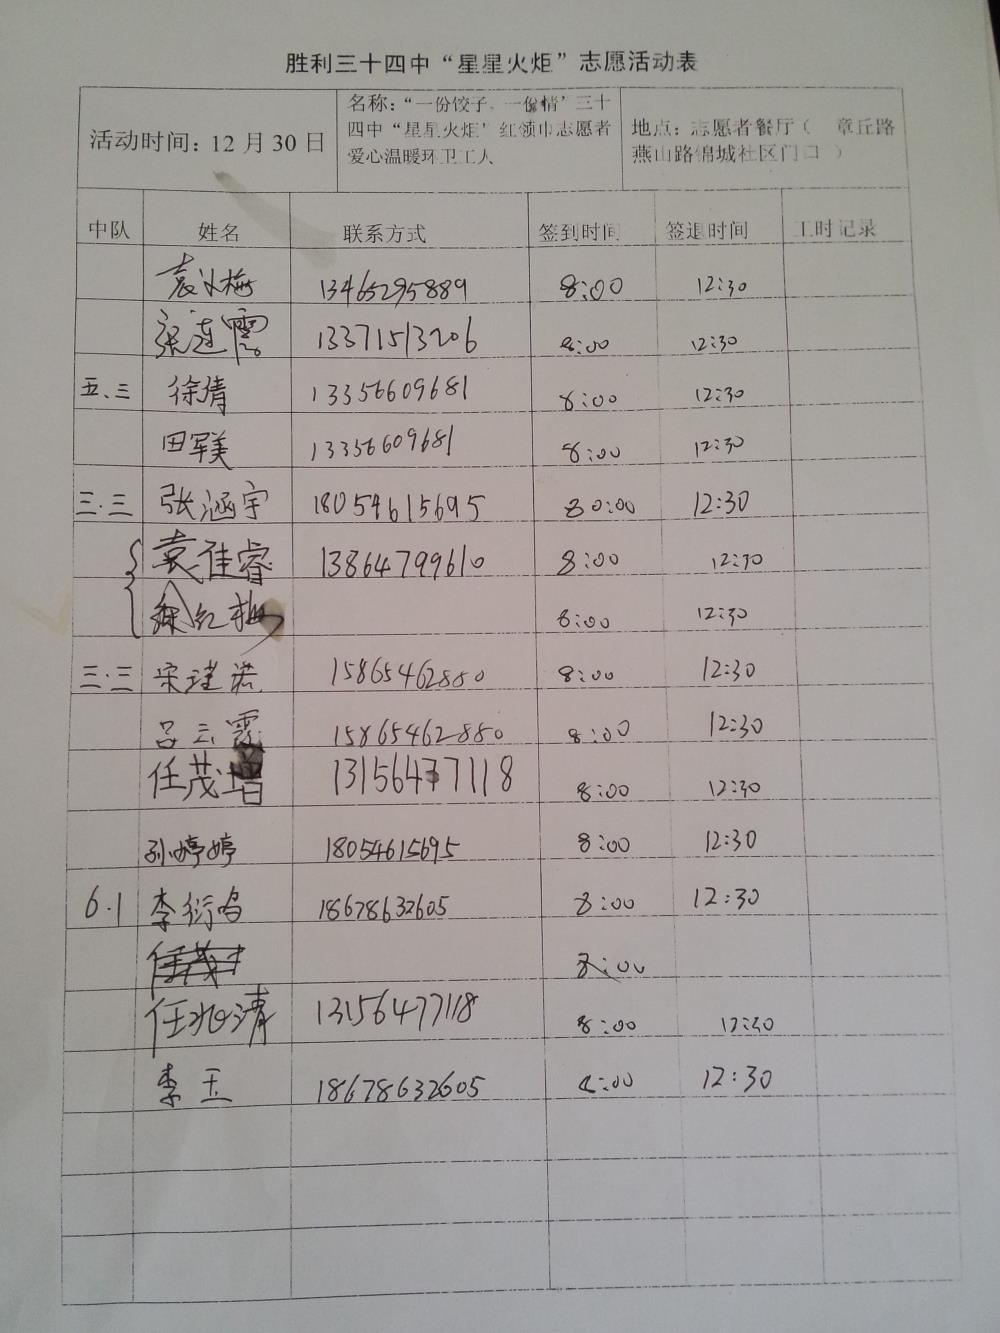 胜利三十四中“星星火炬”志愿活动表
活动时间：12月30日
名称：“一份饺子，一份情”三十
四中“星星火炬”红领巾志愿者
爱心温暖环卫工人
地点：志愿者餐厅（ 章丘路
燕山路锦城社区门口 ）
中队 姓名 联系方式 签到时间 签退时间 工时记录
袁小梅 13465295889 8:00 12:30
梁莲霞 13371513206 8:00 12:30
五.三 徐倩 13356609681 8:00 12:30
田军美 13356609681 8:00 12:30
三.三 张涵宇 18054615695 80:00 12:30
袁佳睿 13864799610 8:00 12:30
徐红梅 8:00 12:30
三.三 宋瑾诺 15865462880 8:00 12:30
吕云霞 15865462880 8:00 12:30
任茂增 13156477118 8:00 12:30
孙婷婷 18054615695 8:00 12:30
6.1 李衍鸣 18678632605 8:00 12:30
任茂 8:00
任兆清 13156477118 8:00 12:30
李玉 18678632605 8:00 12:30